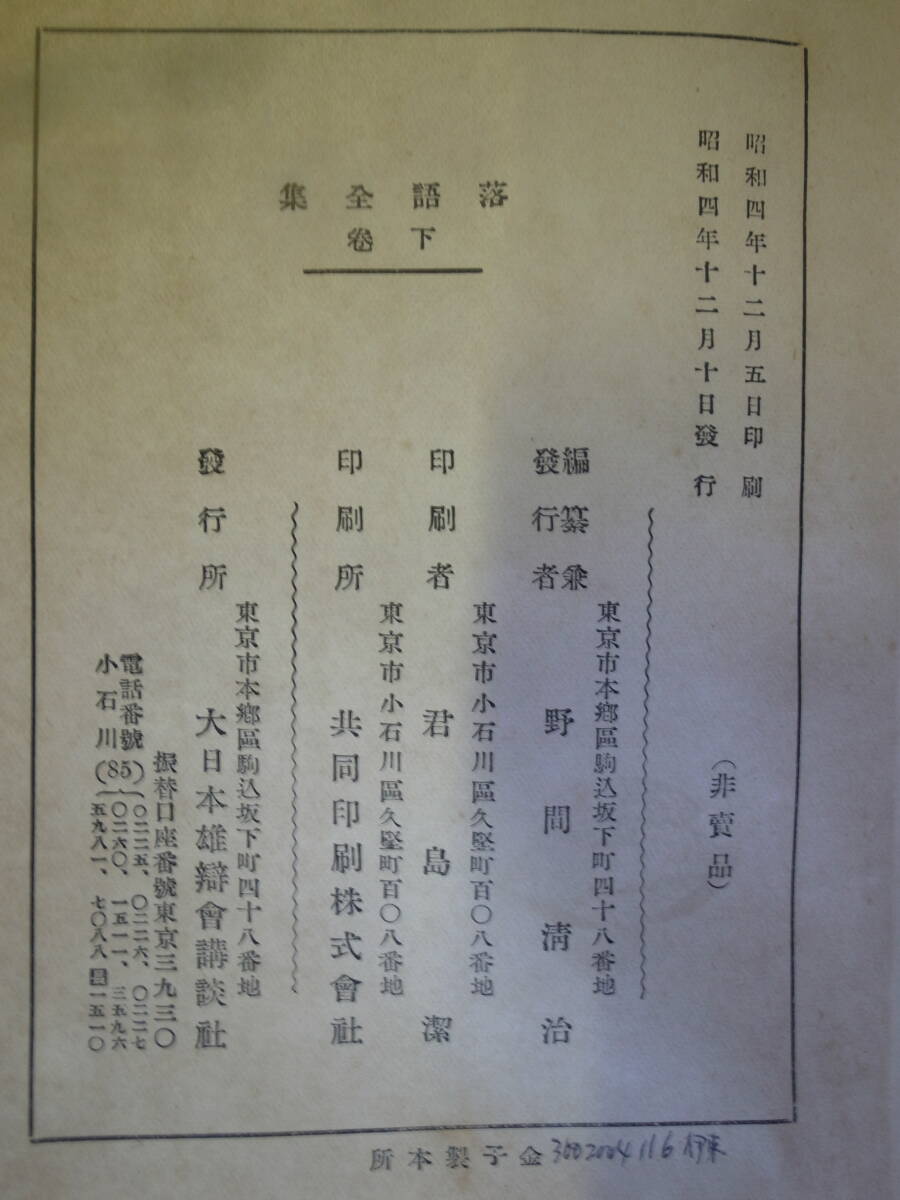 昭和四年十二月五日印刷
昭和四年十二月十日發行
(非賣品)
落語全集
下卷
編纂兼
發行者
東京市本鄕區駒込坂下町四十八番地
野間淸治
印刷者
東京市小石川區久堅町百〇八番地
君島潔
印刷所
東京市小石川區久堅町百〇八番地
共同印刷株式會社
發行所
東京市本鄕區駒込坂下町四十八番地
大日本雄辯會講談社
振替口座番號東京三九三〇
電話番號
小石川(85)
〇二二五、〇二二六、〇二二七
〇二六〇、一五一一、三五九六
五九八一、七〇八八 一五一〇
金子製本所
300 2004 11 6 伊東